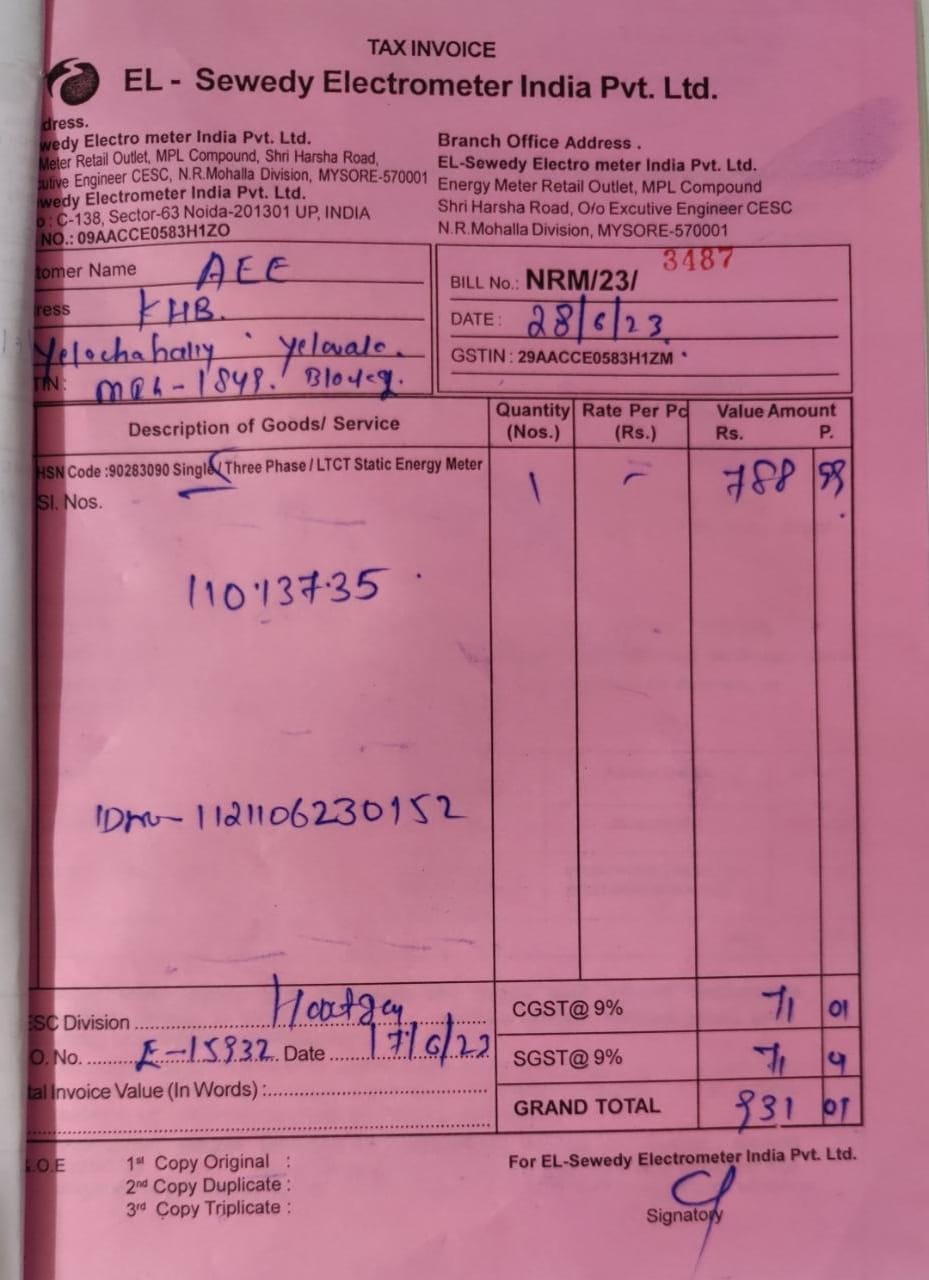 TAX INVOICE
EL - Sewedy Electrometer India Pvt. Ltd.
dress.
wedy Electro meter India Pvt. Ltd.
Meter Retail Outlet, MPL Compound, Shri Harsha Road,
utive Engineer CESC, N.R.Mohalla Division, MYSORE-570001
wedy Electrometer India Pvt. Ltd.
o : C-138, Sector-63 Noida-201301 UP, INDIA
NO.: 09AACCE0583H1ZO
Branch Office Address .
EL-Sewedy Electro meter India Pvt. Ltd.
Energy Meter Retail Outlet, MPL Compound
Shri Harsha Road, O/o Excutive Engineer CESC
N.R.Mohalla Division, MYSORE-570001
tomer Name AEE
ress KHB.
Yelachahally Yelavala.
TIN:
BILL No.: NRM/23/ 3487
DATE : 28/6/23
GSTIN : 29AACCE0583H1ZM
Description of Goods/ Service
Quantity (Nos.)
Rate Per Pc (Rs.)
Value Amount
Rs. P.
HSN Code :90283090 Single / Three Phase / LTCT Static Energy Meter 1 - 788 99
Sl. Nos.
11013735
1121106230152
ESC Division
O. No. E-15932 Date 17/6/23
tal Invoice Value (In Words) :
CGST@ 9% 71 01
SGST@ 9% 71
GRAND TOTAL 931 01
.O.E
1st Copy Original :
2nd Copy Duplicate :
3rd Copy Triplicate :
For EL-Sewedy Electrometer India Pvt. Ltd.
Signatory